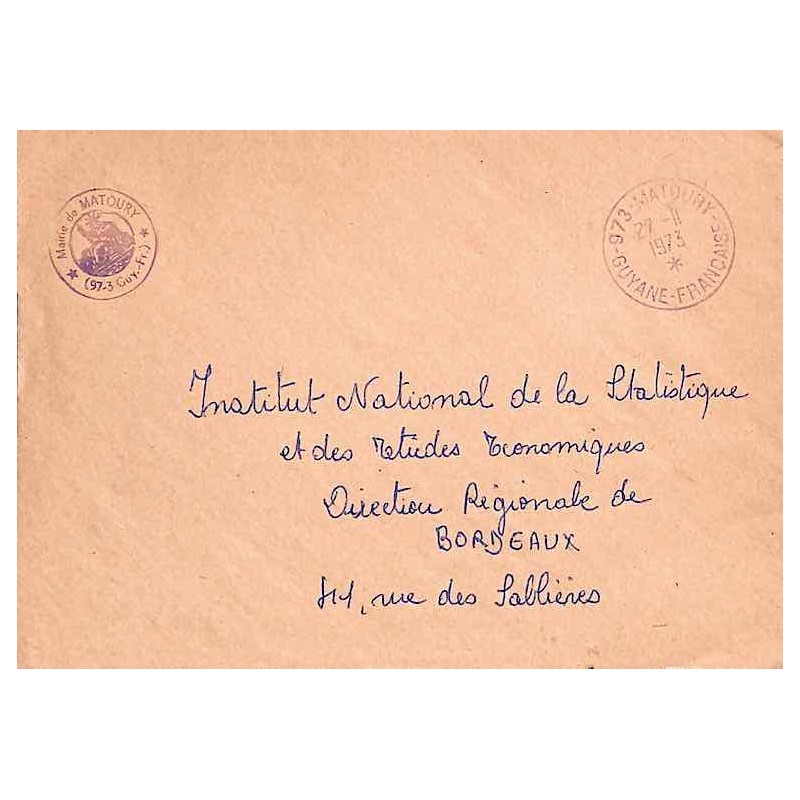 Mairie de MATOURY
(97-3 Guy.-Fr.)
973-MATOURY-
27-11
1973
GUYANE-FRANCAISE
Institut National de la Statistique
et des Etudes Economiques
Direction Régionale de
BORDEAUX
rue des Sablières